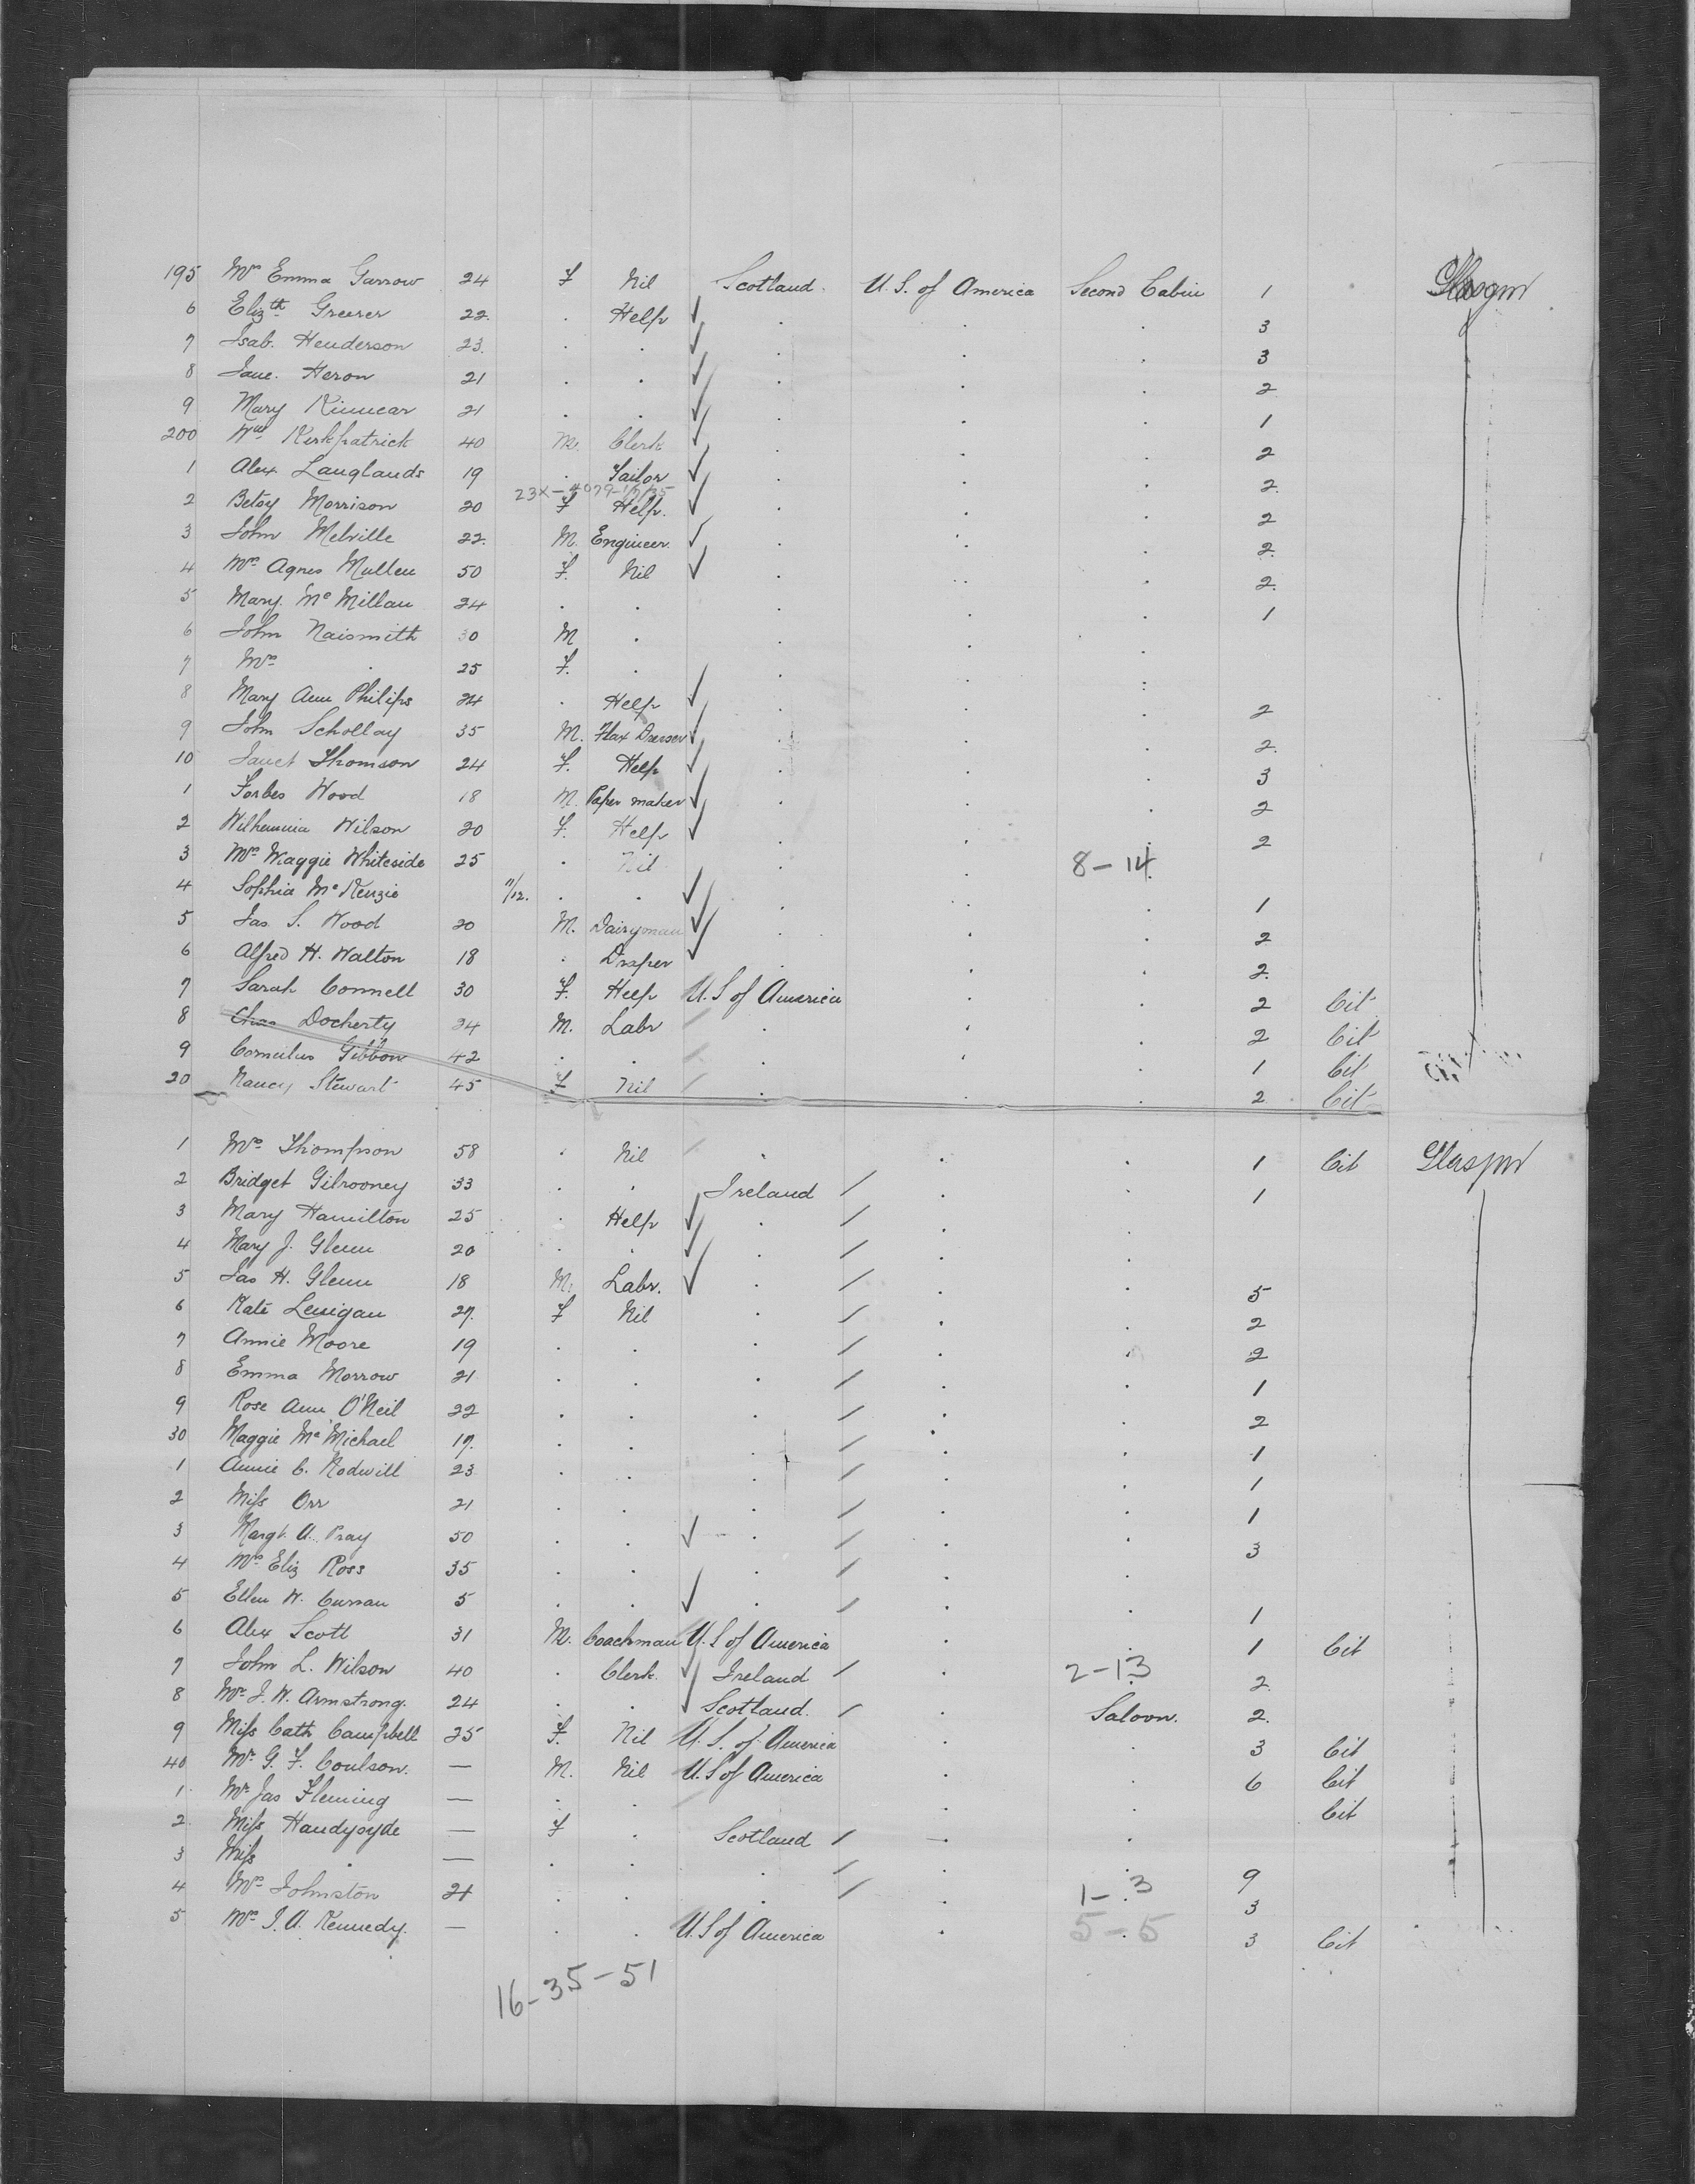 195 Mrs Emma Garrow 24 F Nil Scotland. U.S. of America Second Cabin 1 Glasgow
6 Elizth Greerer 22. . Help ✓ . . . 3
7 Isab. Henderson 23. . . ✓ . . . 3
8 Jane. Heron 21 . . ✓ . . . 2
9 Mary Kinnear 21 . . ✓ . . . 1
200 Wm Kirkpatrick 40 M. Clerk ✓ . . . 2
1 Alex Langlands 19 . Tailor ✓ . . . 2.
23X-4079-1/7/35
2 Betsy Morrison 20 F Help. ✓ . . . 2
3 John Melville 22. M. Engineer. ✓ . . . 2.
4 Mrs Agnes Mullen 50 F. Nil ✓ . . . 2.
5 Mary. McMillan 24 . . . . . 1
6 John Naismith 30 M . . . .
7 Mrs . 25 F. . . . .
8 Mary Ann Philips 24 . Help ✓ . . . 2
9 John Schollay 35 M. Flax Dresser ✓ . . . 2.
10 Janet Thomson 24 F. Help ✓ . . . 3
1 Forbes Wood 18 M. Paper maker ✓ . . . 2
2 Wilhemina Wilson 20 F. Help ✓ . . . 2
3 Mrs Maggie Whiteside 25 . Nil . . 8-14.
4 Sophia McKenzie 11/12. . . ✓ . . . 1
5 Jas S. Wood 20 M. Dairyman ✓ . . . 2
6 Alfred H. Walton 18 . Draper ✓ . . . 2.
7 Sarah Connell 30 F. Help U.S of America . . 2 Cit
8 Chas Docherty 34 M. Labr . . . 2 Cit
9 Cornelius Gibbon 42 . . . . . 1 Cit
20 Nancy Stewart 45 F Nil . . . 2 Cit
1 Mrs Thompson 58 . Nil . . . 1 Cit Glasgow
2 Bridget Gilrooney 33 . . Ireland / . . 1
3 Mary Hamilton 25 . Help ✓ . / . .
4 Mary J. Glenn 20 . . ✓ . / . .
5 Jas H. Glenn 18 M. Labr. ✓ . / . . 5
6 Kate Lenigan 27. F Nil . / . . 2
7 Annie Moore 19 . . . / . . 2
8 Emma Morrow 21 . . . / . . 1
9 Rose Ann O'Neil 22 . . . / . . 2
30 Maggie McMichael 17. . . . / . . 1
1 Annie C. Rodwill 23 . . . / . . 1
2 Miss Orr 21 . . . / . . 1
3 Margt. A. Pray 50 . . ✓ . / . . 3
4 Mrs Eliz Ross 35 . . . / . .
5 Ellen W. Curran 5 . . ✓ . / . . 1
6 Alex Scott 31 M. Coachman U.S of America . . 1 Cit
7 John L. Wilson 40 . Clerk. ✓ Ireland / . 2-13 2.
8 Mr. J. W. Armstrong. 24 . . ✓ Scotland. / . Saloon. 2.
9 Miss Cath Campbell 25 F. Nil U.S. of America . . 3 Cit
40 Mr. G. F. Coulson. — M. Nil U.S of America . . 6 Cit
1 Mr Jas Fleming — . . . . Cit
2. Miss Handyoyde — F . Scotland / . .
3 Miss . — . . . / . . 9
4 Mrs Johnston 21 . . . / . 1-3 3
5 Mrs J. A. Kennedy. — . . U.S of America . 5-5 3 Cit
16-35-51